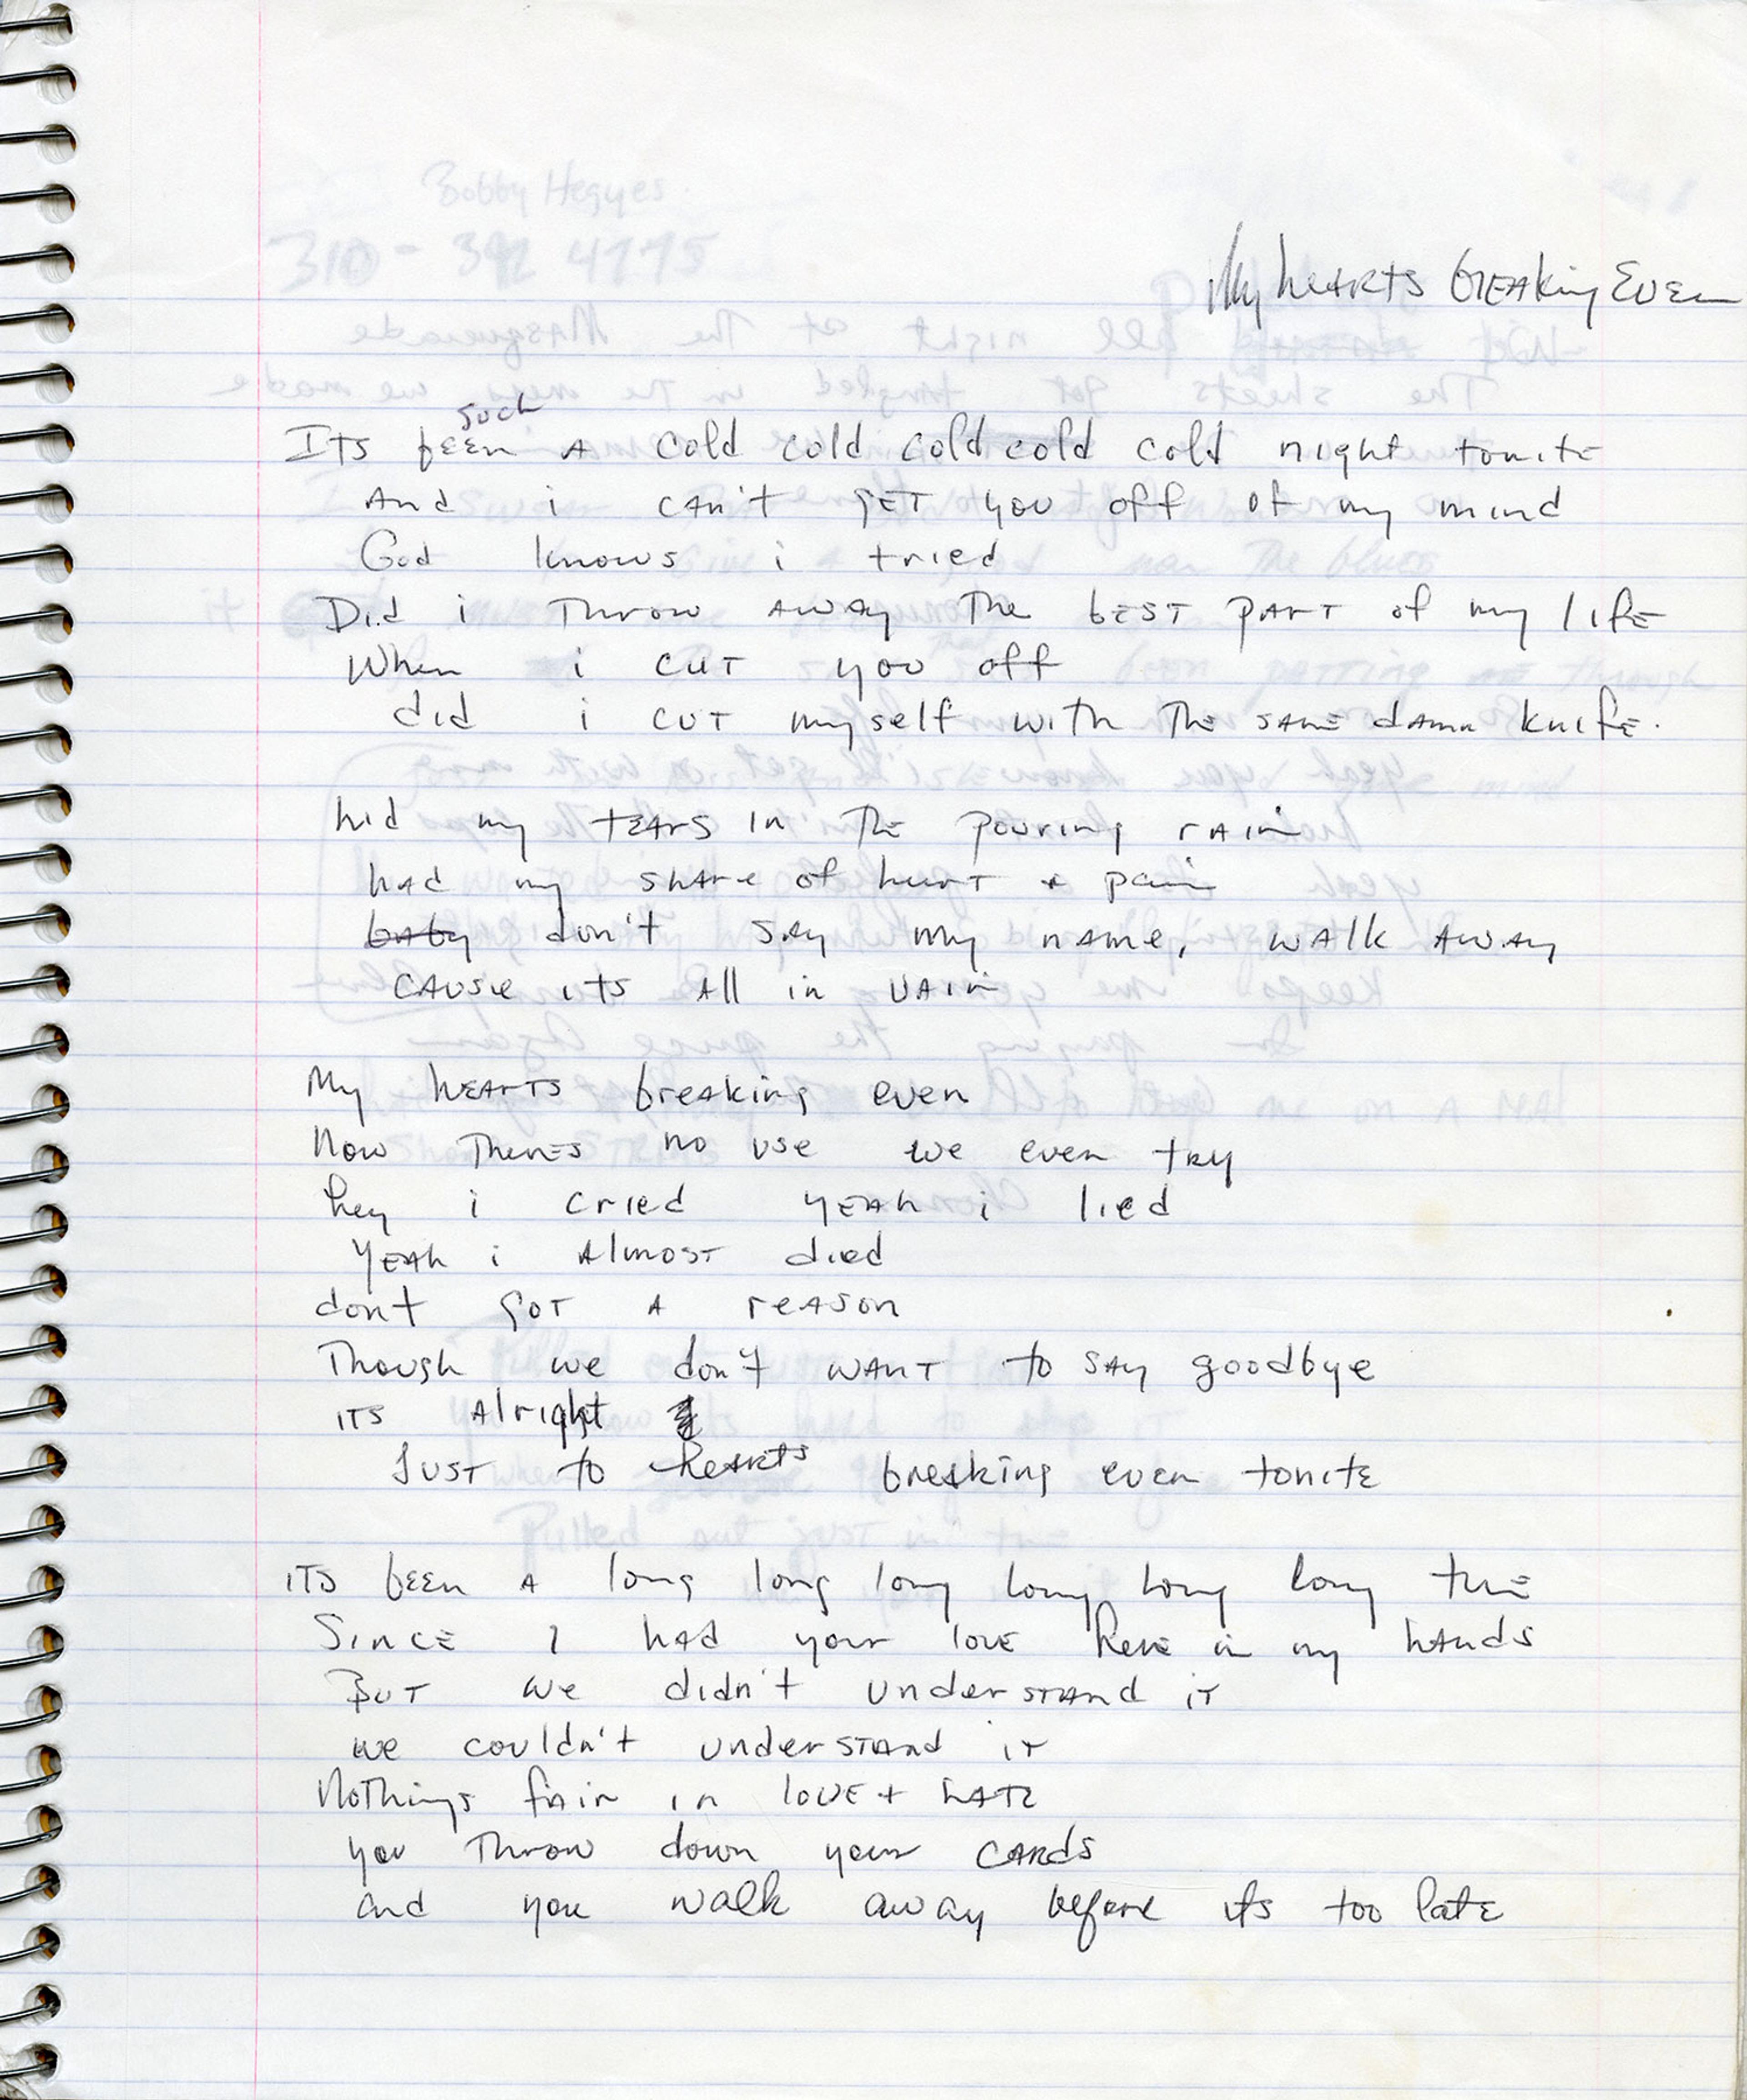 Bobby Hegyes
My hearts breaking Even
such
Its been A cold cold cold cold cold night tonite
And i can't get you off of my mind
God knows i tried
Did i throw away the best part of my life
When i cut you off
did i cut myself with the same damn knife.
hid my tears in the pouring rain
had my share of hurt + pain
baby don't say my name, walk away
cause its all in vain
My hearts breaking even
Now theres no use we even try
hey i cried yeah i lied
yeah i almost died
dont got a reason
Though we don't want to say goodbye
its alright
Just to hearts breaking even tonite
its been a long long long long long long time
Since I had your love here in my hands
But we didn't understand it
we couldn't understand it
Nothings fair in love + hate
you throw down your cards
and you walk away before its too late